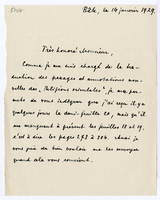 Bâle, le 14 janvier 1929.
Très honoré Monsieur,
Comme je me suis chargé de la tra-
duction des passages et annotations nou-
velles des „Religions orientales" je me per-
mets de vous indiquer que j'ai reçu il y a
quelques jours la demi-feuille 20, mais qu'il
me manquent à présent les feuilles 18 et 19,
c'est à dire les pages 273 à 304. Aussi je
vous prie de bien vouloir me les envoyer
quand cela vous convient.